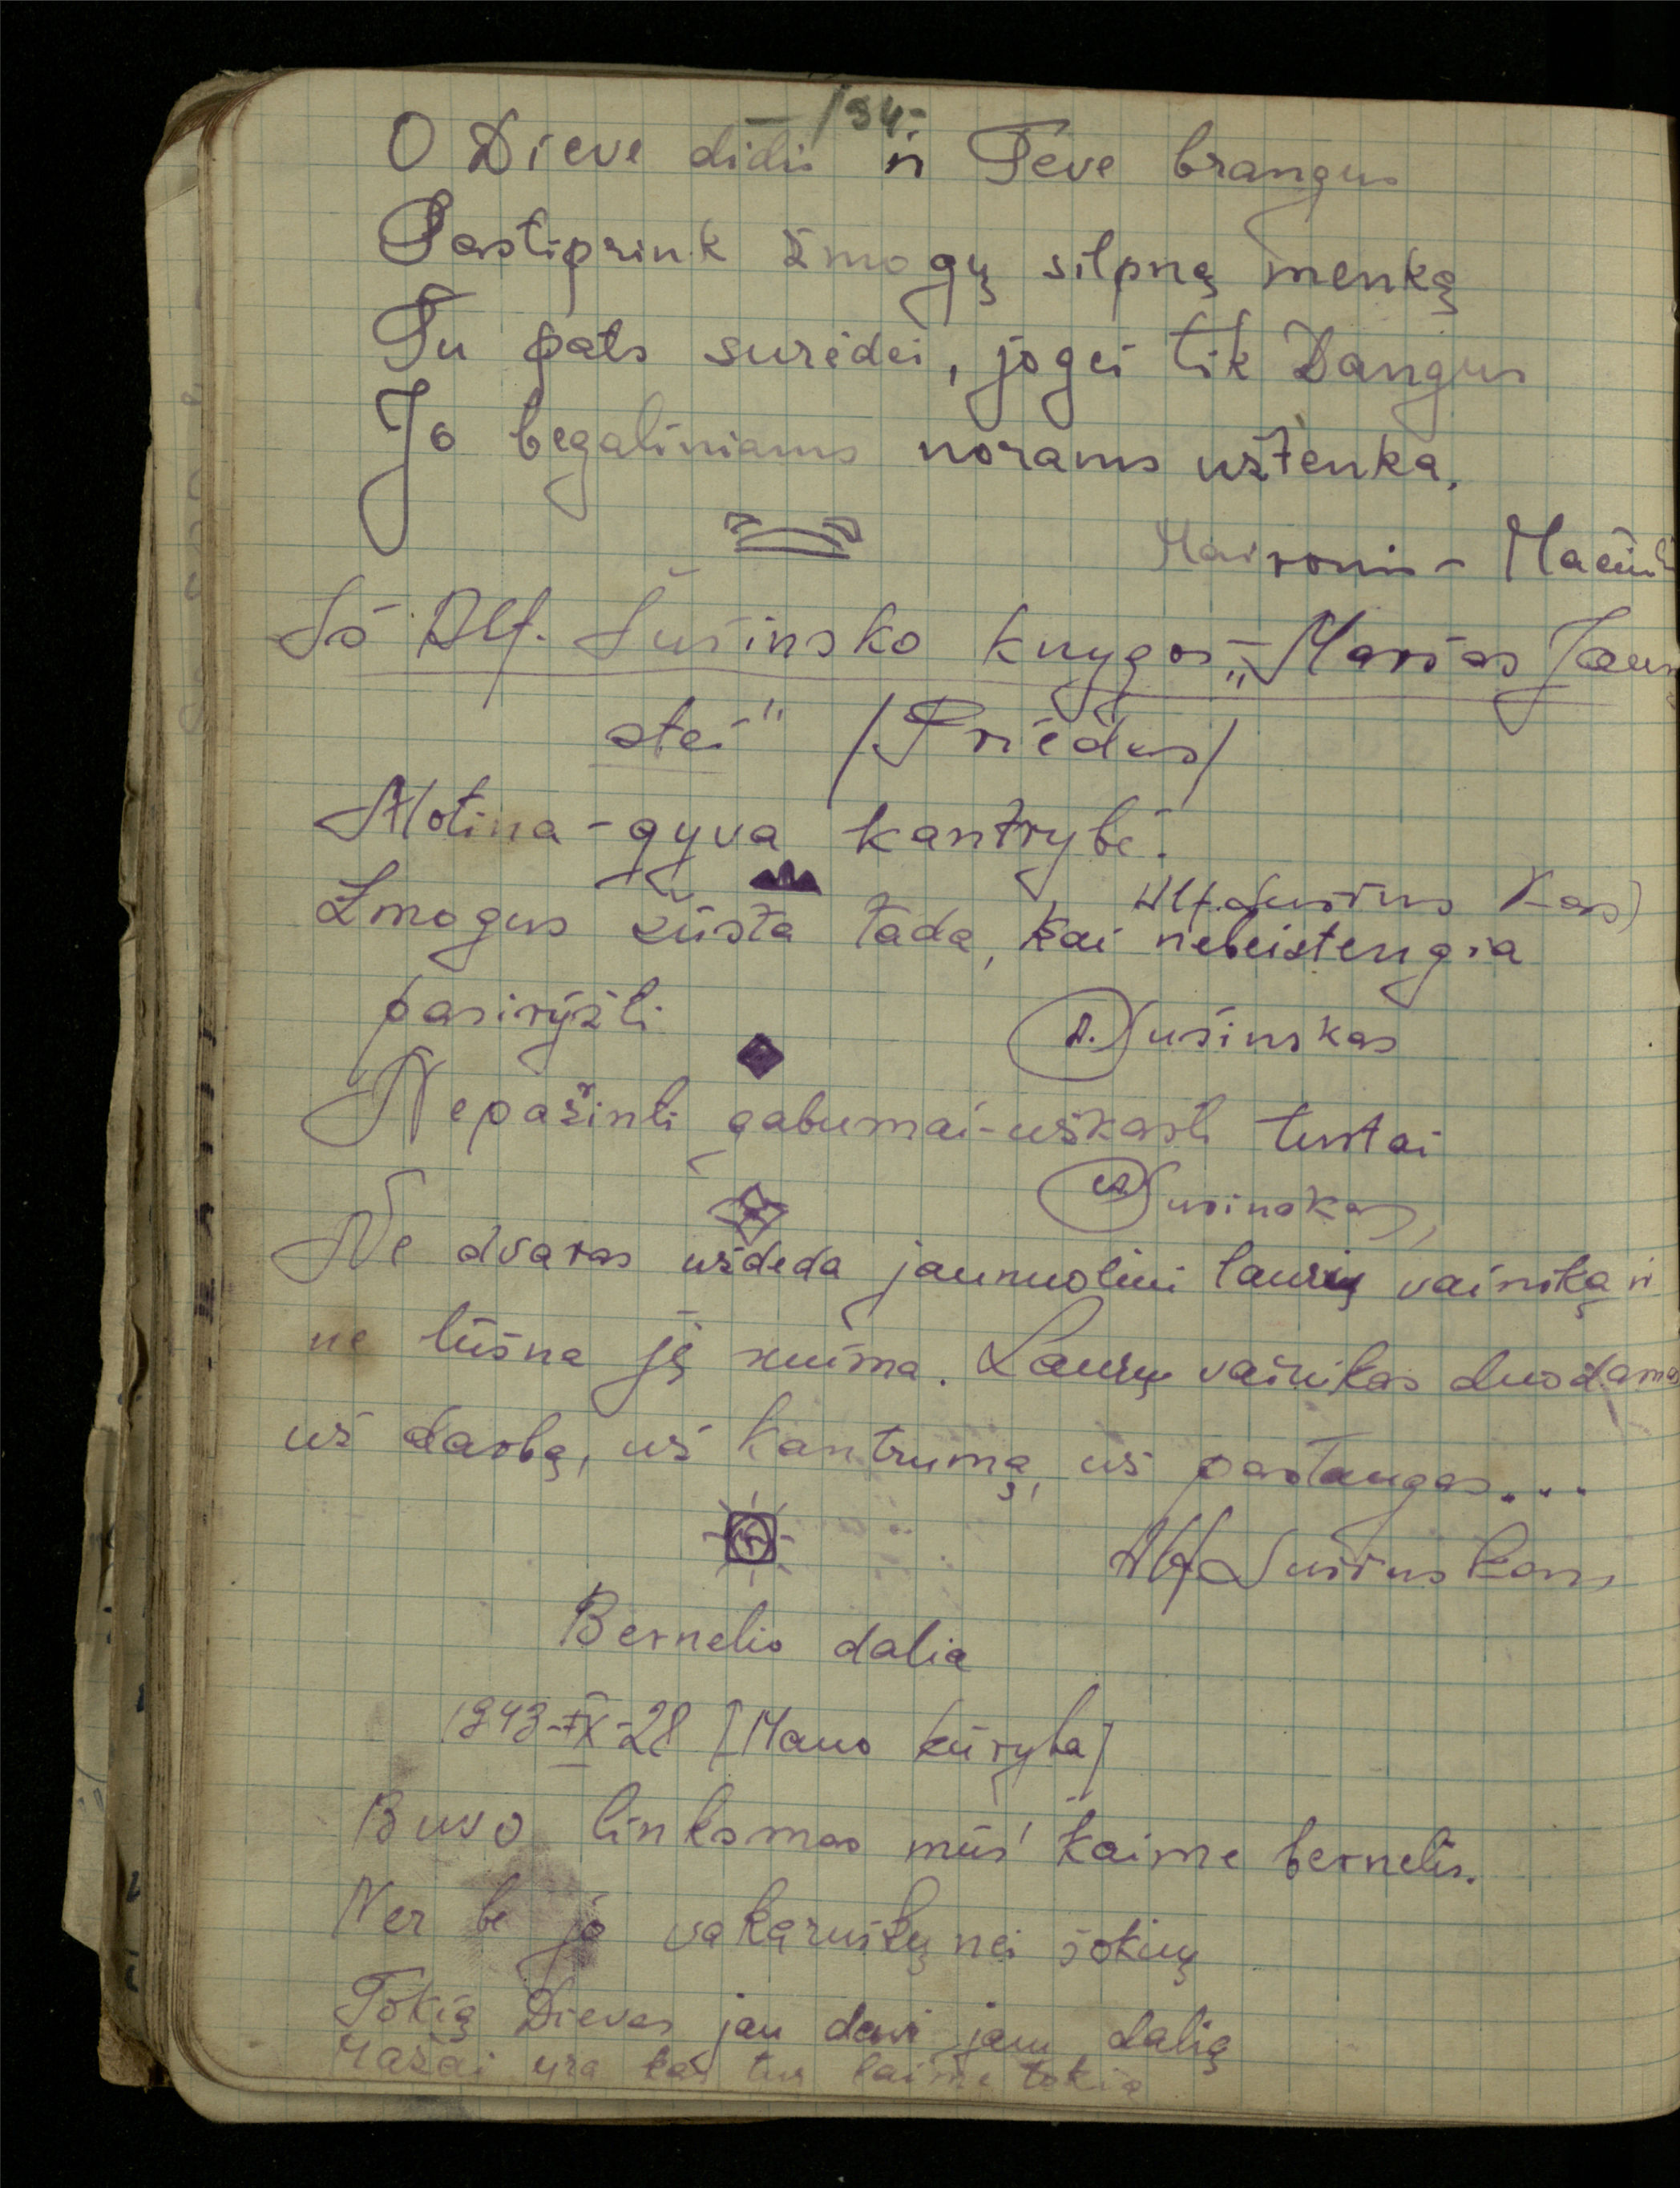 —/94.—
O Dieve didis ir Tėve brangus
Pastiprink žmogų silpną menką
Tu pats surėdei, jogei tik Dangus
Jo begaliniams norams užtenka.
Maironis – Mačiul
Iš Alf. Šušinsko knygos „Maršas Jaun
stei" /Priedas/
Motina – gyva kantrybė.
Alf. Šušinskas
Žmogus žūsta tada, kai nebeįstengia
pasiryžti
A. Šušinskas
Nepažinti gabumai – užkasti turtai
A. Šušinskas,
Ne dvaras uždeda jaunuoliui laurų vainiką ir
ne lūšna jį nuima. Laurų vainikas duodamas
už darbą, už kantrumą, už pastangas...
Alf Šušinskas,
Bernelio dalia
1943-IX-28 [Mano kūryba]
Buvo linksmas mūs' kaime bernelis.
Nėr be jo vakaruškų nei šokių
Tokią Dievas jau davė jam dalią
Mažai yra kas tur laimę tokią